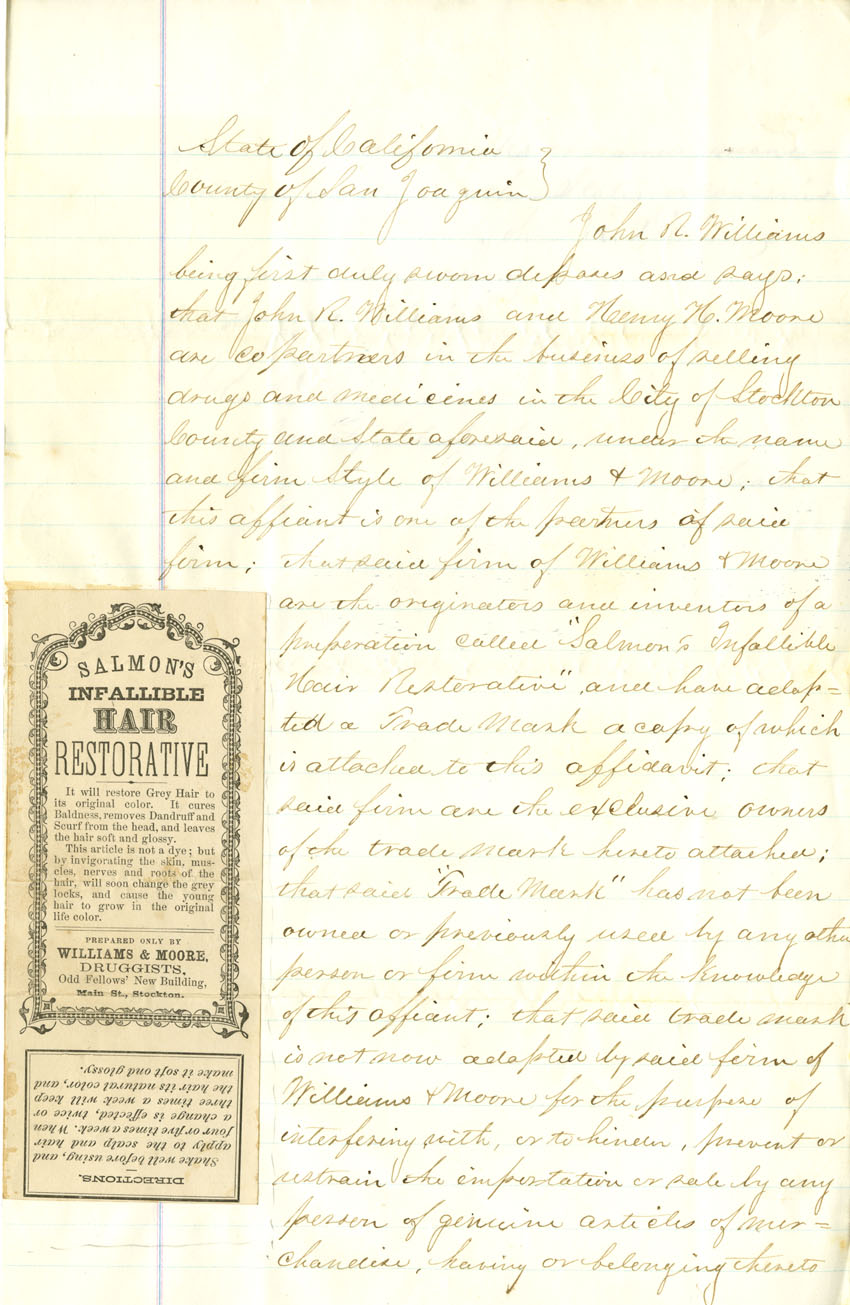 State of California }
County of San Joaquin }
John R. Williams
being first duly sworn deposes and says:
that John R. Williams and Henry H. Moore
are copartners in the business of selling
drugs and medicines in the City of Stockton
County and State aforesaid, under the name
and firm Style of Williams & Moore; that
this affiant is one of the partners of said
firm; that said firm of Williams & Moore
are the originators and inventors of a
preperation called "Salmon's Infallible
Hair Restorative", and have adop=
ted a Trade Mark a copy of which
is attached to this affidavit; that
said firm are the exclusive owners
of the trade mark hereto attached;
that said "Trade Mark" has not been
owned or previously used by any other
person or firm within the knowledge
of this affiant; that said trade mark
is not now adapted by said firm of
Williams & Moore for the purpose of
interfering with, or to hinder, prevent or
restrain the importation or sale by any
person of genuine articles of mer=
chandise, having or belonging thereto
SALMON'S
INFALLIBLE
HAIR
RESTORATIVE
It will restore Grey Hair to
its original color. It cures
Baldness, removes Dandruff and
Scurf from the head, and leaves
the hair soft and glossy.
This article is not a dye; but
by invigorating the skin, mus-
cles, nerves and roots of the
hair, will soon change the grey
locks, and cause the young
hair to grow in the original
life color.
PREPARED ONLY BY
WILLIAMS & MOORE,
DRUGGISTS,
Odd Fellows' New Building,
Main St., Stockton.
DIRECTIONS.
Shake well before using, and
apply to the scalp and hair
four or five times a week. When
a change is effected, twice or
three times a week will keep
the hair its natural color, and
make it soft and glossy.